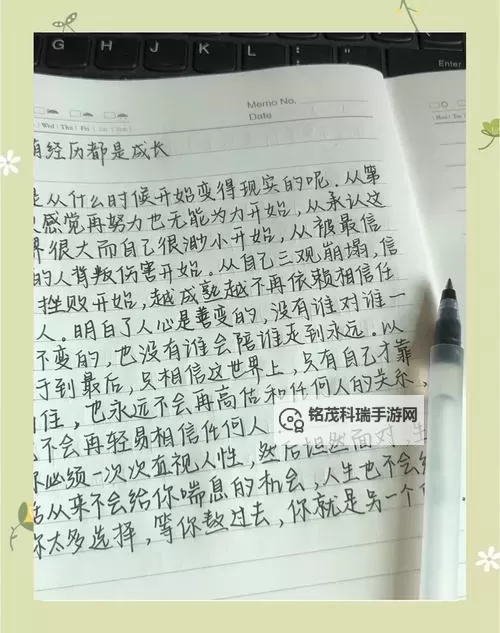 G H J K L
B N M
Enter
Memo No.
Date
Wed Thu Fri Sat Sun
Mon Tue
有经历都是成长
是从什么时候开始变得现实的呢.从第
感觉再努力也无能为力开始,从承认这
界很大而自己很渺小开始,从被最信
的人背叛伤害开始.从自己三观崩塌,信
挫败开始,越成熟越不再依赖相信任
人.明白了人心是善变的,没有谁对谁一
不变的,也没有谁会陪谁走到永远.以
于到最后,只相信这世界上,只有自己才靠
住,也永远不会再高估和任何人的关系,
不会再轻易相信任何人
铭茂科瑞手游网
你必须一次次直视人性,然后坦然面对,生
活从来不会给你喘息的机会,人生也不会给
你太多选择,等你熬过去,你就是另一个